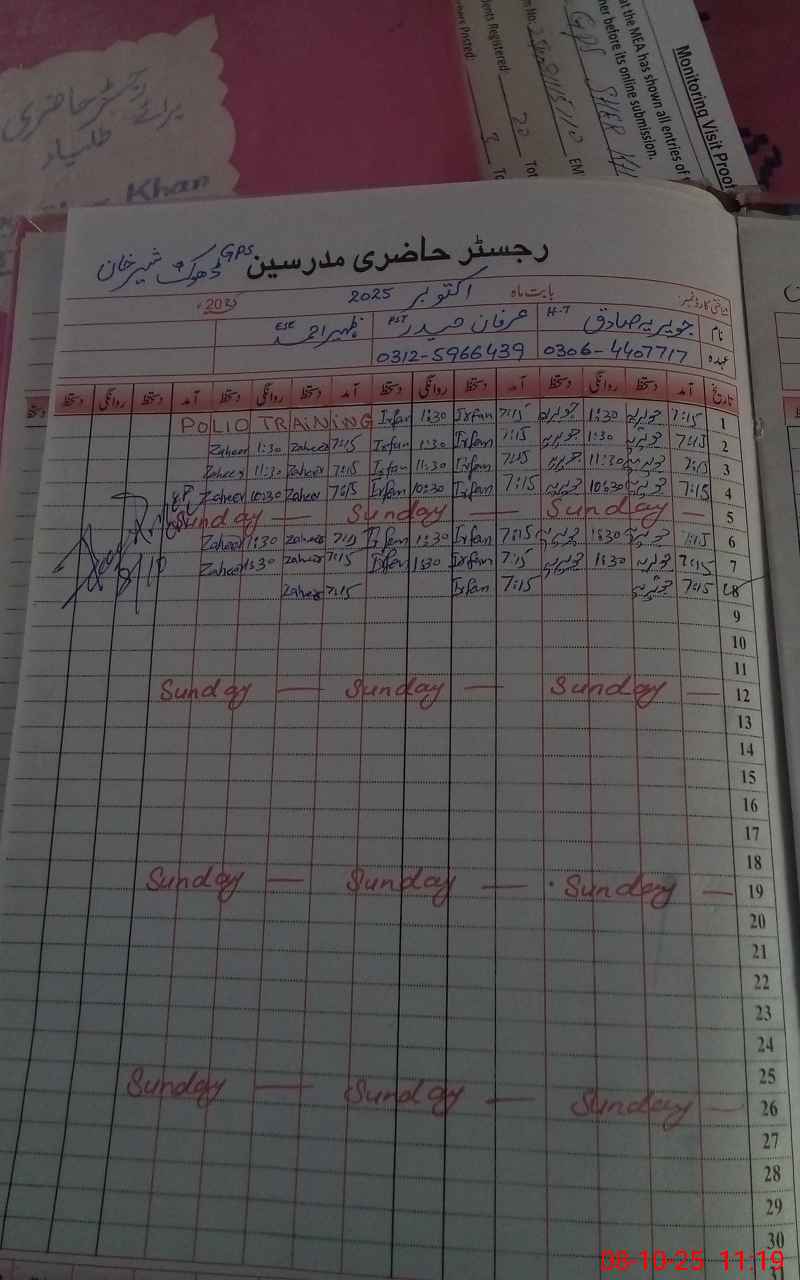 Monitoring Visit Proof
at the MEA has shown all entries of
her before its online submission.
GPS SHER KH
EM
ents Registered: 20 Tot
3
برائے رجسٹر حاضری
طلباء
Khan
رجسٹر حاضری مدرسین GPS ڈھوک شیر خان
بابت ماہ اکتوبر 2025
نام جویریہ صادق H-T عرفان حیدر PST ظہیر احمد ESE
عہدہ 0306-4407717 0312-5966439
تاریخ آمد دستخط روانگی دستخط آمد دستخط روانگی دستخط آمد دستخط روانگی دستخط آمد دستخط روانگی دستخط
1 7:15 جویریہ 1:30 جویریہ 7:15 Irfan 1:30 Irfan POLIO TRAINING
2 7:15 جویریہ 1:30 جویریہ 7:15 Irfan 1:30 Irfan 7:15 Zaheer 1:30 Zaheer
3 7:15 جویریہ 11:30 جویریہ 7:15 Irfan 11:30 Irfan 7:15 Zaheer 11:30 Zaheer
4 7:15 جویریہ 10:30 جویریہ 7:15 Irfan 10:30 Irfan 7:15 Zaheer 10:30 Zaheer
5 Sunday — Sunday — Sunday —
6 7:15 جویریہ 1:30 جویریہ 7:15 Irfan 1:30 Irfan 7:15 Zaheer 1:30 Zaheer
7 7:15 جویریہ 1:30 جویریہ 7:15 Irfan 1:30 Irfan 7:15 Zaheer 1:30 Zaheer
8 7:15 جویریہ 7:15 Irfan 7:15 Zaheer
8/10
9
10
11
12 Sunday — Sunday — Sunday —
13
14
15
16
17
18
19 Sunday — Sunday — Sunday —
20
21
22
23
24
25
26 Sunday — Sunday — Sunday —
27
28
29
30
31
08-10-25 11:19